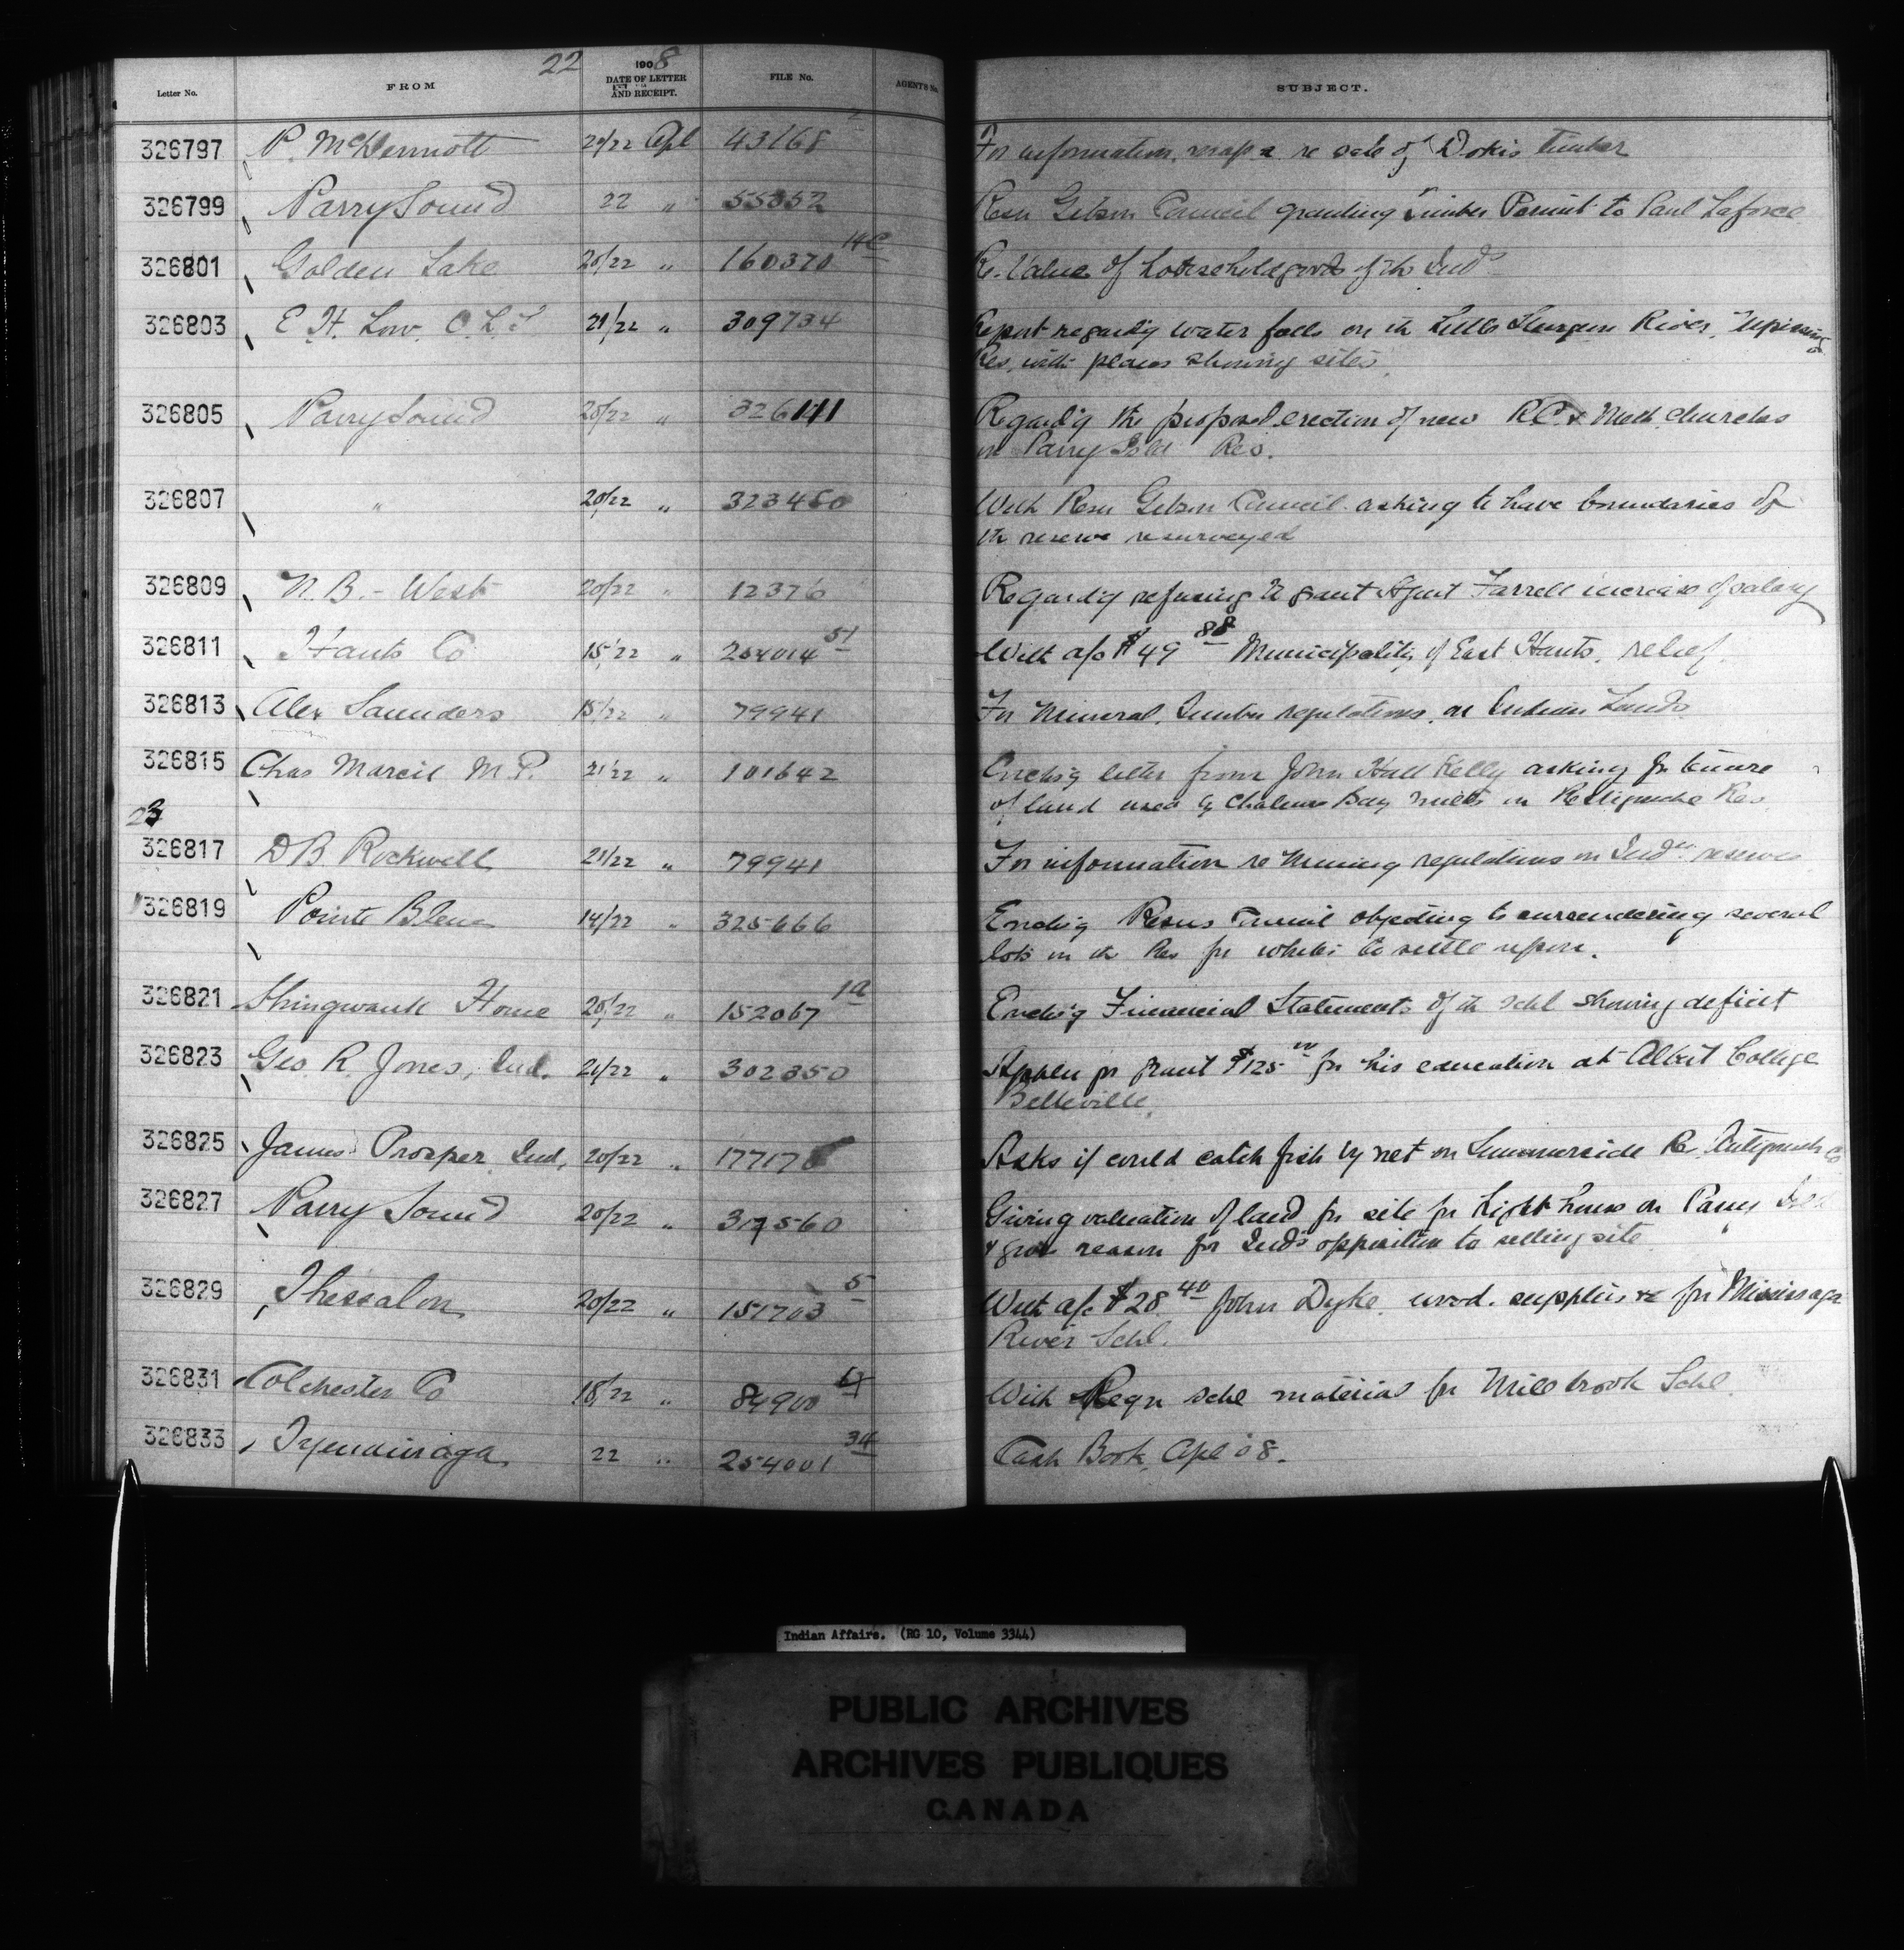 22
Letter No. FROM 1908 DATE OF LETTER AND RECEIPT. FILE No. AGENT'S No. SUBJECT.
326797 P. McDermott 21/22 Apl 43168 For information, maps &c re sale of Dokis timber
326799 Parry Sound 22 " 55052 Resn Gibson Council granting timber Permit to Paul Laforce
326801 Golden Lake 20/22 " 160370 14C Re. Value of household goods of the Inds
326803 E H. Low. O. L. S 21/22 " 309734 Report regardg water falls on th Little Sturgeon River, Nipissing
Res, with plans showing sites.
326805 Parry Sound 20/22 " 326141 Regard'g the proposed erection of new R.C. & Meth. churches
on Parry Isld Res.
326807 " 20/22 " 323460 With Resn Gibson Council asking to have boundaries of
th reserve resurveyed
326809 N. B. - West 20/22 " 12376 Regard'g refusing to grant Agent Farrell increase of salary
326811 Hants Co 15/22 " 254014 51 With a/c $49 88 Municipality of East Hants. relief.
326813 Alex Saunders 15/22 " 79941 For Mineral, Timber regulations, on Indian Lands
326815 Chas Marcil M.P. 21/22 " 101642 Encls'g letter from John Hall Kelly asking for tenure
of land used by Chaleurs Bay Mills on Restigouche Res.
23
326817 D B. Rockwell 21/22 " 79941 For information re Mining regulations on Indn reserves
326819 Pointe Bleue 14/22 " 325666 Encls'g Resns Council objecting to surrendering several
lots in th Res for whites to settle upon.
326821 Shingwauk Home 20/22 " 152067 1a Encls'g Financial Statements of th schl showing deficit
326823 Geo. R. Jones, Ind. 21/22 " 302350 Applcn for grant $125 00 for his education at Albert College
Belleville.
326825 James Prosper, Ind. 20/22 " 177176 Asks if could catch fish by net on Summerside Re. Antigonish Co
326827 Parry Sound 20/22 " 317560 Giving valuation of land for site for Light house on Parry Isld
& give reason for Inds opposition to selling site
326829 Thessalon 20/22 " 151703 5 With a/c $28 40 John Dyke, wood. supplies &c for Mississaga
River Schl.
326831 Colchester Co 18/22 " 84900 With Reqn schl material for Millbrook Schl.
326833 Tyendinaga 22 " 254001 34 Cash Book, Apl 08.
Indian Affairs. (RG 10, Volume 3344)
PUBLIC ARCHIVES
ARCHIVES PUBLIQUES
CANADA